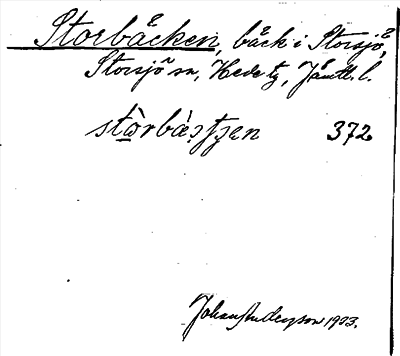 Storbäcken, bäck i Storsjö,
Storsjö sn, Hede tg, Jämtl. l.
stòrbàʂʈʂen 372
Johan Anderzson 1933.